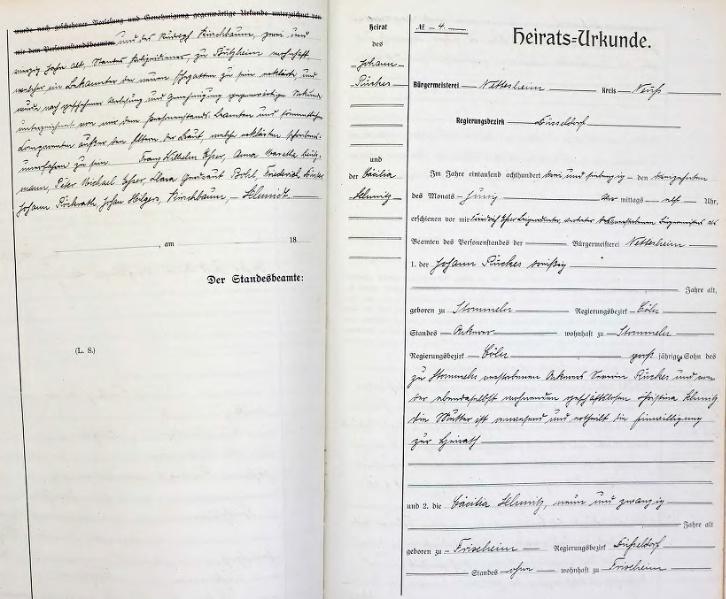 wurde nach geschehener Vorlesung und Genehmigung gegenwärtige Urkunde unterzeichnet von
mir dem Personenstandsbeamten und des Rudolph Kirschbaum, zwei und
zig Jahre alt, Standes zu wohnhaft
welcher ein Bekannter der neuen Ehegatten zu sein erklärte, und
wurde nach geschehener Vorlesung und Genehmigung gegenwärtige Urkunde
unterzeichnet von mir dem Personenstands-Beamten und sämmtlichen
Comparenten außer den Eltern der Braut, welche erklärten schreibens-
unerfahren zu sein Franz Wilhelm Esser, Anna
Peter Michael Esser, Clara Friederich
Johann Johann Hilgers, Kirschbaum, Schmidt
, am 18
Der Standesbeamte:
(L. S.)
Heirat
des
Johann
Rückes
und
der Cäcilia
Schmitz
№ 4.
Heirats-Urkunde.
Bürgermeisterei Nettesheim Kreis Neuß
Regierungsbezirk Düsseldorf
Im Jahre eintausend achthundert und siebenzig den
des Monats Juny mittags elf Uhr,
erschienen vor mir
Beamten des Personenstandes der Bürgermeisterei Nettesheim
1. der Johann Rückes dreißig
Jahre alt,
geboren zu Stommeln Regierungsbezirk Cöln
Standes Ackerer wohnhaft zu Stommeln
Regierungsbezirk Cöln groß jährige Sohn des
zu Stommeln verstorbenen Ackerers Rückes und von
der ebendaselbst wohnenden geschäftlosen Christina Schmitz
die Mutter ist anwesend und ertheilt die Einwilligung
zur Heirath
und 2. die Cäcilia Schmitz, neun und zwanzig
Jahre alt
geboren zu Frixheim Regierungsbezirk Düsseldorf
Standes ohne wohnhaft zu Frixheim